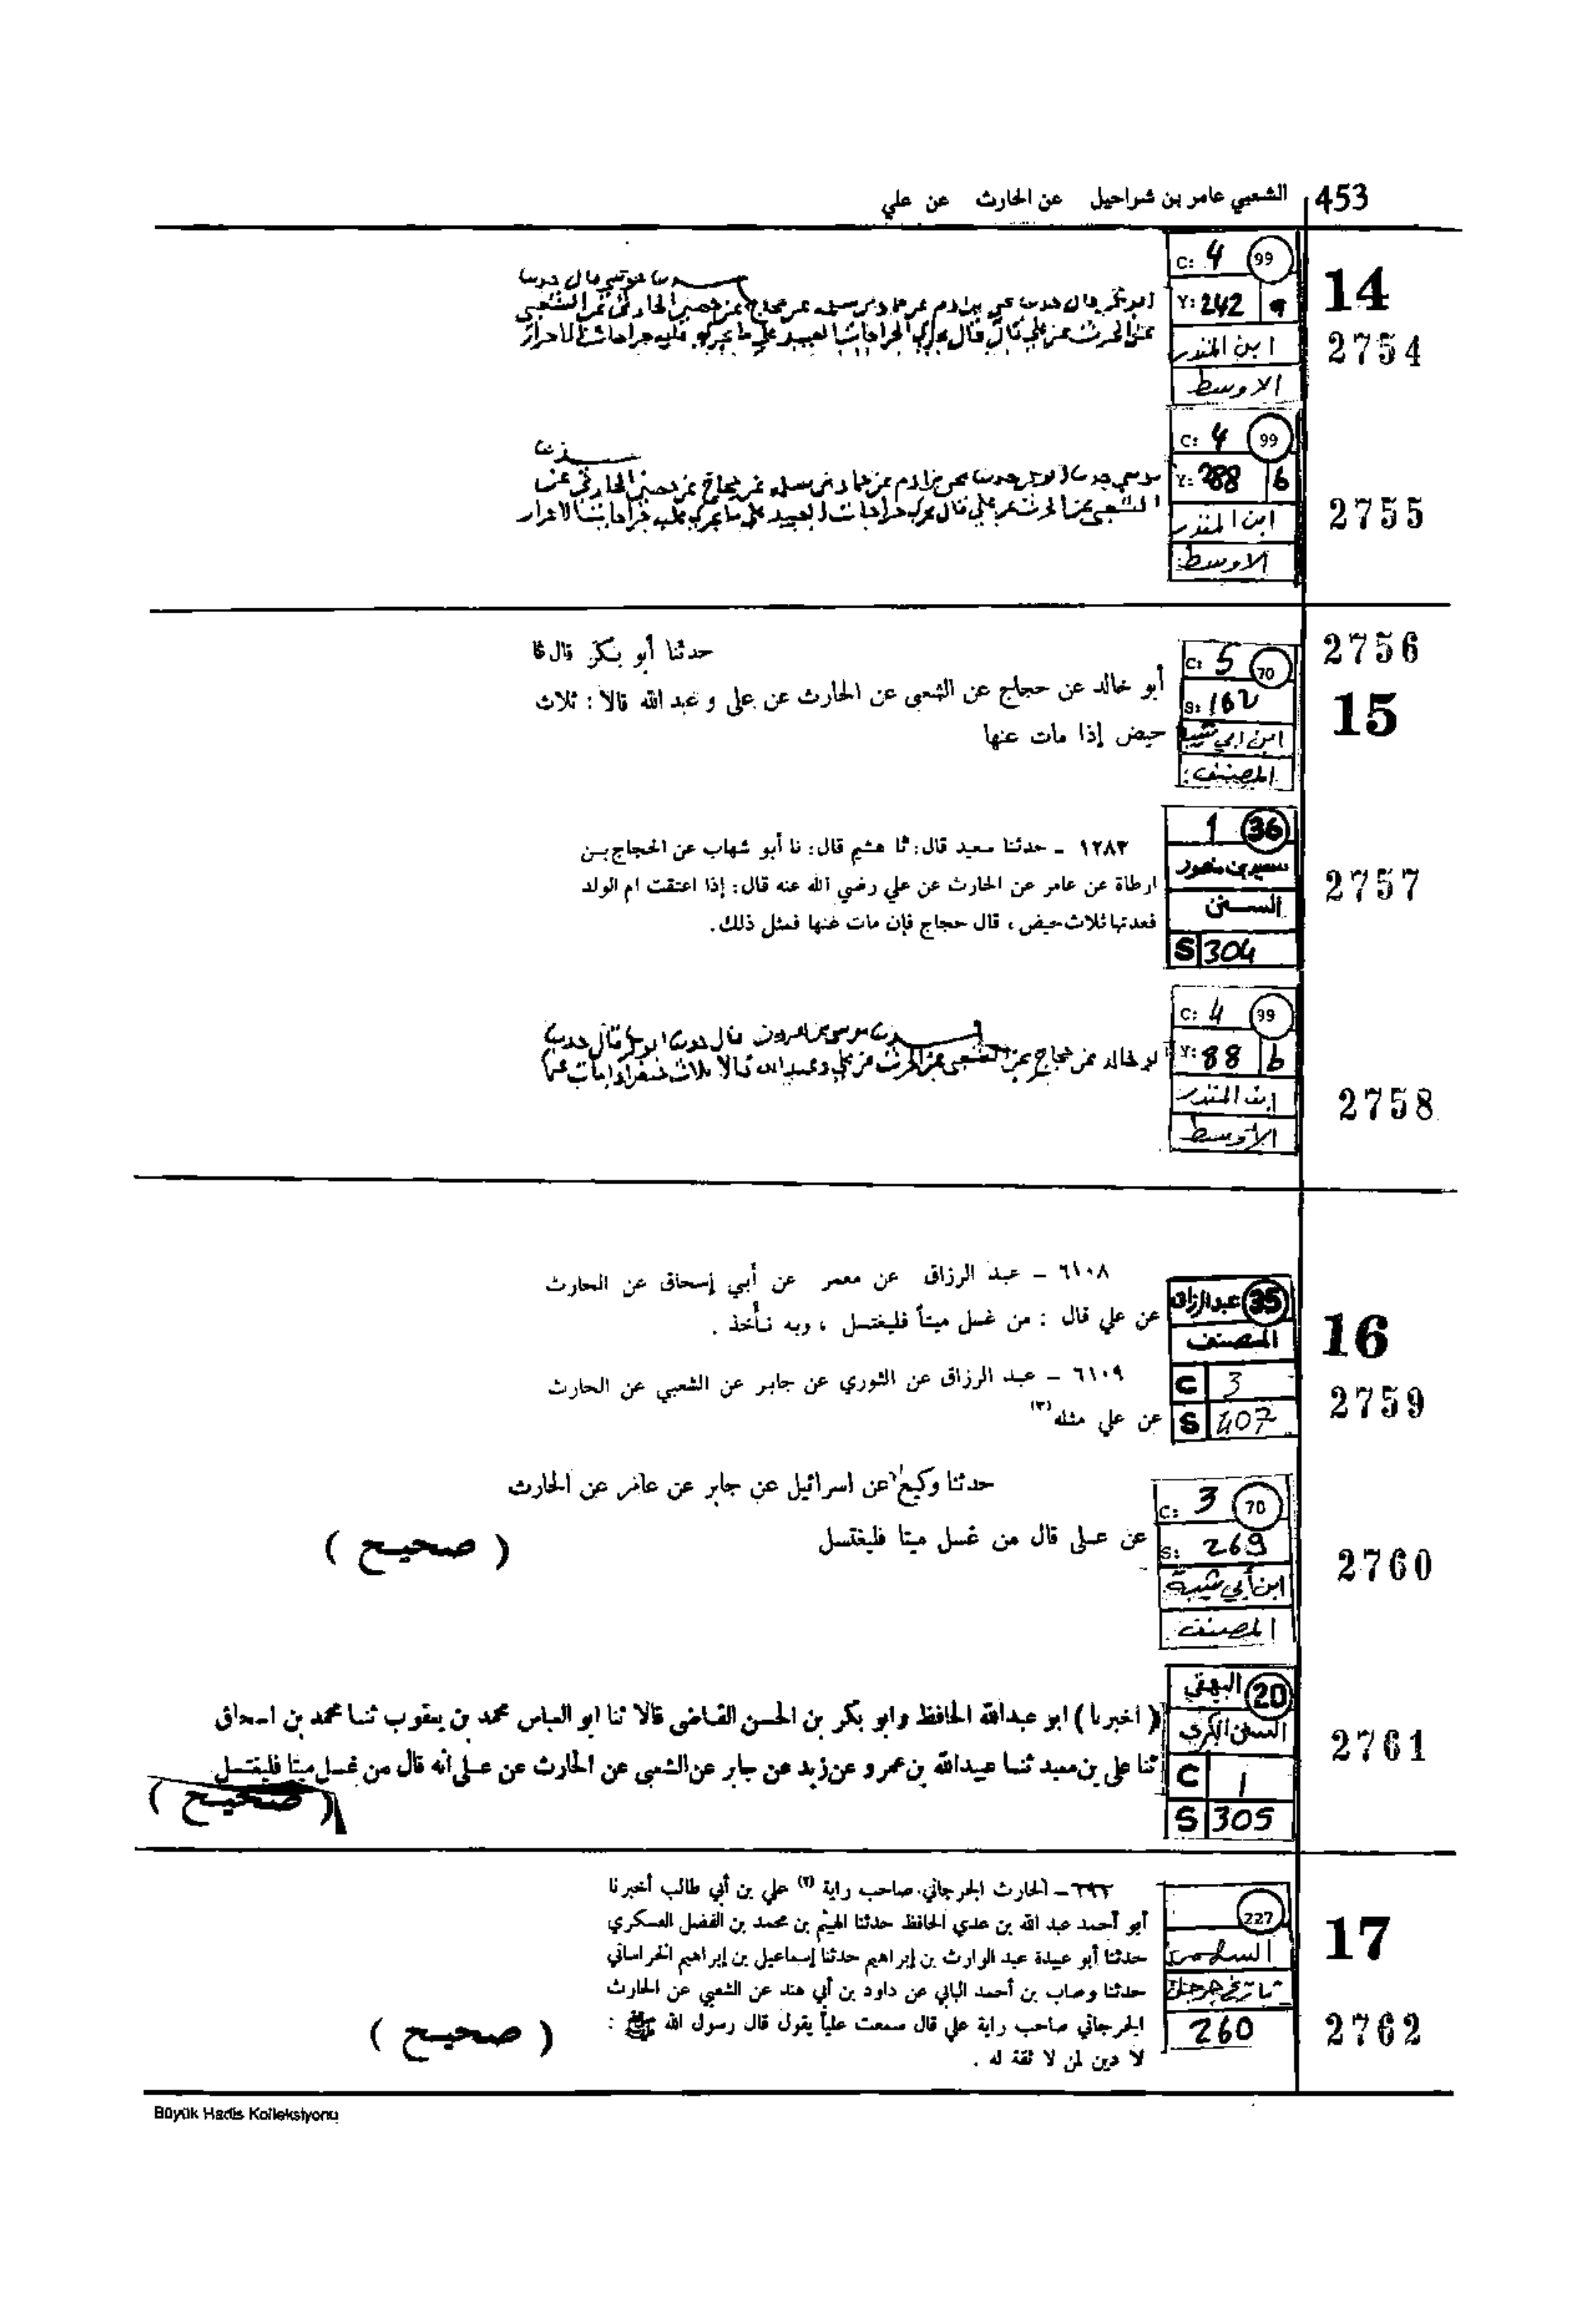 453 الشعبي عامر بن شراحيل عن الحارث عن علي
14
2754
C: 4 99
Y: 242 a
ابن المنذر
الاوسط
حدثنا موسى قال حدثنا
ابو بكر قال حدثنا يحيى بن ادم عن حماد بن سلمه عن حجاج عن حصين الحارثي عن الشعبي
عن الحرث عن علي قال قال تجري جراحات العبيد على ما تجري عليه جراحات الاحرار
2755
C: 4 99
Y: 288 b
ابن المنذر
الاوسط
حدثنا
موسى حدثنا ابو بكر حدثنا يحيى بن ادم عن حماد بن سلمه عن حجاج عن حصين الحارثي عن
الشعبي عن الحرث عن علي قال تجري جراحات العبيد على ما تجري عليه جراحات الاحرار
2756
15
C: 5 70
S: 162
ابن ابي شيبة
المصنف:
حدثنا أبو بكر قال نا
أبو خالد عن حجاج عن الشعبى عن الحارث عن على و عبد الله قالا : ثلاث
حيض إذا مات عنها
2757
1 36
سعيد بن منصور
السنن
S 304
١٢٨٣ ـ حدثنا سعيد قال: نا هشيم قال: نا أبو شهاب عن الحجاج بن
ارطاة عن عامر عن الحارث عن علي رضي الله عنه قال: إذا اعتقت ام الولد
فعدتها ثلاث حيض ، قال حجاج فإن مات عنها فمثل ذلك.
2758
C: 4 99
Y: 88 b
ابن المنذر
الأوسط
حدثنا موسى بن هرون قال حدثنا ابو بكر قال حدثنا
ابو خالد عن حجاج عن الشعبي عن الحرث عن علي وعبد الله قالا ثلاث حيض اذا مات عنها
16
2759
35 عبدالرزاق
المصنف
C 3
S 407
٦١٠٨ – عبد الرزاق عن معمر عن أبي إسحاق عن الحارث
عن علي قال : من غسل ميتاً فليغتسل ، وبه نأخذ .
٦١٠٩ – عبد الرزاق عن الثوري عن جابر عن الشعبي عن الحارث
عن علي مثله (٣)
2760
C: 3 70
S: 269
ابن أبي شيبة
المصنف
حدثنا وكيع عن اسرائيل عن جابر عن عامر عن الحارث
عن عـلى قال من غسل ميتا فليغتسل
( صحيح )
2761
البيهقي 20
السنن الكبرى
C 1
S 305
( اخبرنا ) ابو عبدالله الحافظ وابو بكر بن الحسن القاضى قالا ثنا ابو العباس محمد بن يعقوب ثنا محمد بن اسحاق
ثنا على بن معبد ثنا عبيدالله بن عمرو عن زيد عن جابر عن الشعبى عن الحارث عن عـلى أنه قال من غسل ميتا فليغتسل
( صحيح )
17
2762
227
السهمي
تاريخ جرجان
260
٢٩٢ـ الحارث الجرجاني صاحب راية (٢) علي بن أبي طالب أخبرنا
أبو أحمد عبد الله بن عدي الحافظ حدثنا الهيثم بن محمد بن الفضل العسكري
حدثنا أبو عبيدة عبد الوارث بن إبراهيم حدثنا إسماعيل بن إبراهيم الخراساني
حدثنا وصاب بن أحمد البابي عن داود بن أبي هند عن الشعبي عن الحارث
الجرجاني صاحب راية علي قال سمعت علياً يقول قال رسول الله ﷺ :
لا دين لمن لا ثقة له .
( صحيح )
Büyük Hadis Kolleksiyonu